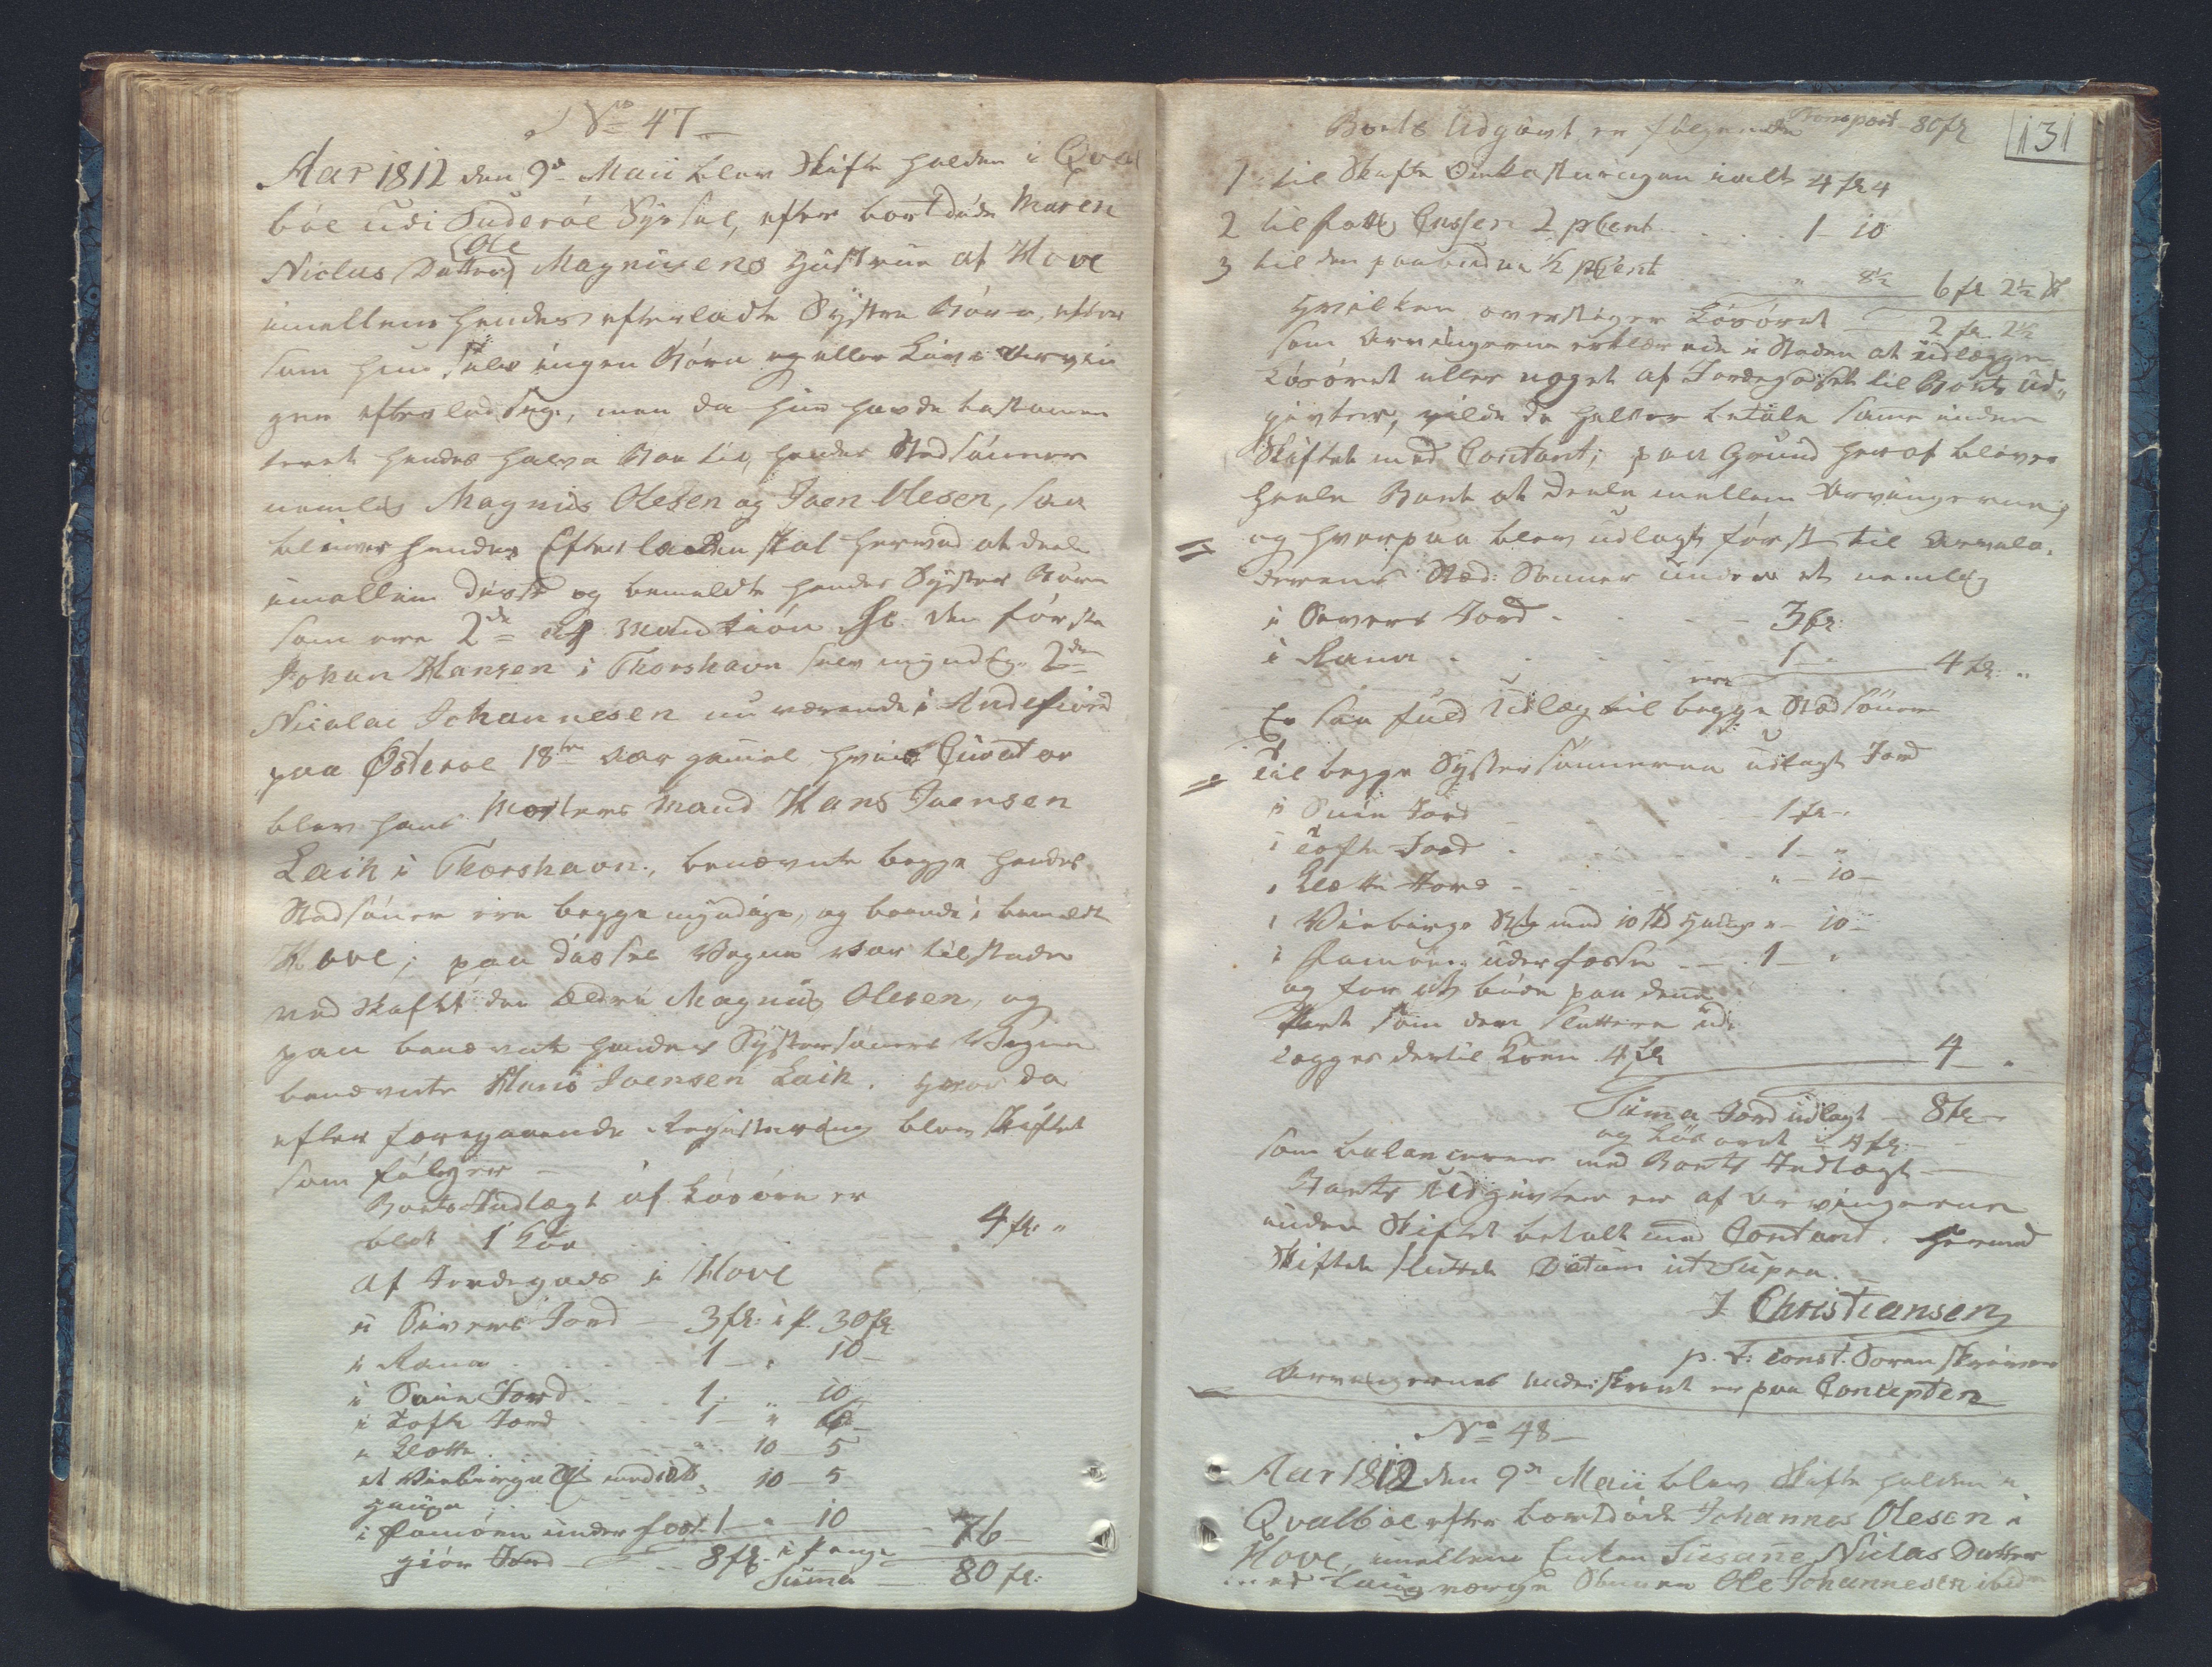 No 47
Aar 1812 den 9de Maii blev Skifte holden i Qval
böe udi Suderöe Syssel, efter bortdöde Maren
Niclas Datter Ole Magnusens Hustrue af Hove
imellem hendes efterladte Syster Börn, efter
som hun selv ingen Börn og eller Livs Arvin
ger efterlod sig, men da hun havde testamen
teret hendes halve Boe til hendes Stedsönner
nemlig Magnus Olesen og Joen Olesen, saa
bliver hendes Efterladen skal herved at deele
imellem disse og bemeldte hendes Syster Börn
som ere 2de af Mandkiön St. den förste
Johan Hansen i Thorshavn selv myndig. 2den
Nicolai Johannesen nu værende i Andefiord
paa Österöe 18ten Aar gamel hvis Curator
blev hans Mosters Mand Hans Joensen
Laik i Thorshavn., benævnte begge hendes
Stedsöner ere begge myndige, og boende i bemeldte
Hove; paa disses Vegne var tilstæde
ved Skiftet den Ældre Magnus Olesen, og
paa benævnte hendes Systersöners Vegne
benævnte Hans Joensen Laik. Hvor da
efter foregaaende Registering blev Skiftet
som fölger
Boets Indlægt af Lösöre er
blot 1 Koe 4 fl: "
af Jordegods i Hove
i Sivers Jord 3 fl: i p. 30 fl
i Rana 1 " 10
i Suin Jord 1 " 10
i Tofte Jord 1 "
i Klette 10 5
10 5
hauge
i Hamören under foss 1 " 10 76
giör Jord 8 fl. i penge
Suma 80 fl:
131
Transport 80 fl
Boets Udgivt er fölgende
1 til Skifte Omkostningen ialt 4 fl 4
2 til fattig Cassen 2 pCent 1 10
3 til den paabudne ½ pCent " 8½ 6 fl 2½
Hvilken overstiger Lösöret 2 fl. 2½
som Arvingerne erklærede i Steden at udlægge
Lösöret eller noget af Jordegodset til Boets Ud
givter, vilde de heller betale same under
Skiftet med Contant; paa Grund heraf bliver
heele Boet at deele mellem Arvingerne
og hvorpaa blev udlagt först til Arvela
derens Sted Sönner under et nemlig
i Sivers Jord 3 fl:
i Rana 1 " 4 fl: "
Er saa fuld Udlæg til begge Stedsöner
Til begge Systersönnerne udlagt Jord
i Suin Jord 1 fl
i Tofte Jord 1 "
i Klette Jord " 10
i Viebirge med 10 10
i Hamören under fossen 1 "
og for at böde paa dene
Part som den slettere ud
lægges dertil Koen 4 fl 4 "
Suma Jord udlagt 8 fl
og Lösöret i 4 fl:
som balancerer med Boets Indlægt
Boets Udgivter er af Arvingerne
under Skiftet betalt med Contant. Hermed
Skiftet sluttet Datum ut Supra.
J Christiansen
p. t: const. Sorenskriver
Arvingernes underskrivt er paa Concepten
No 48
Aar 1812 den 9de Maii blev Skifte holden i
Qvalböe efter bortdöde Johannes Olesen i
Hove, imellem Enken Susane Niclas Datter
med Laugværge Sönnen Ole Johannesen ibidm